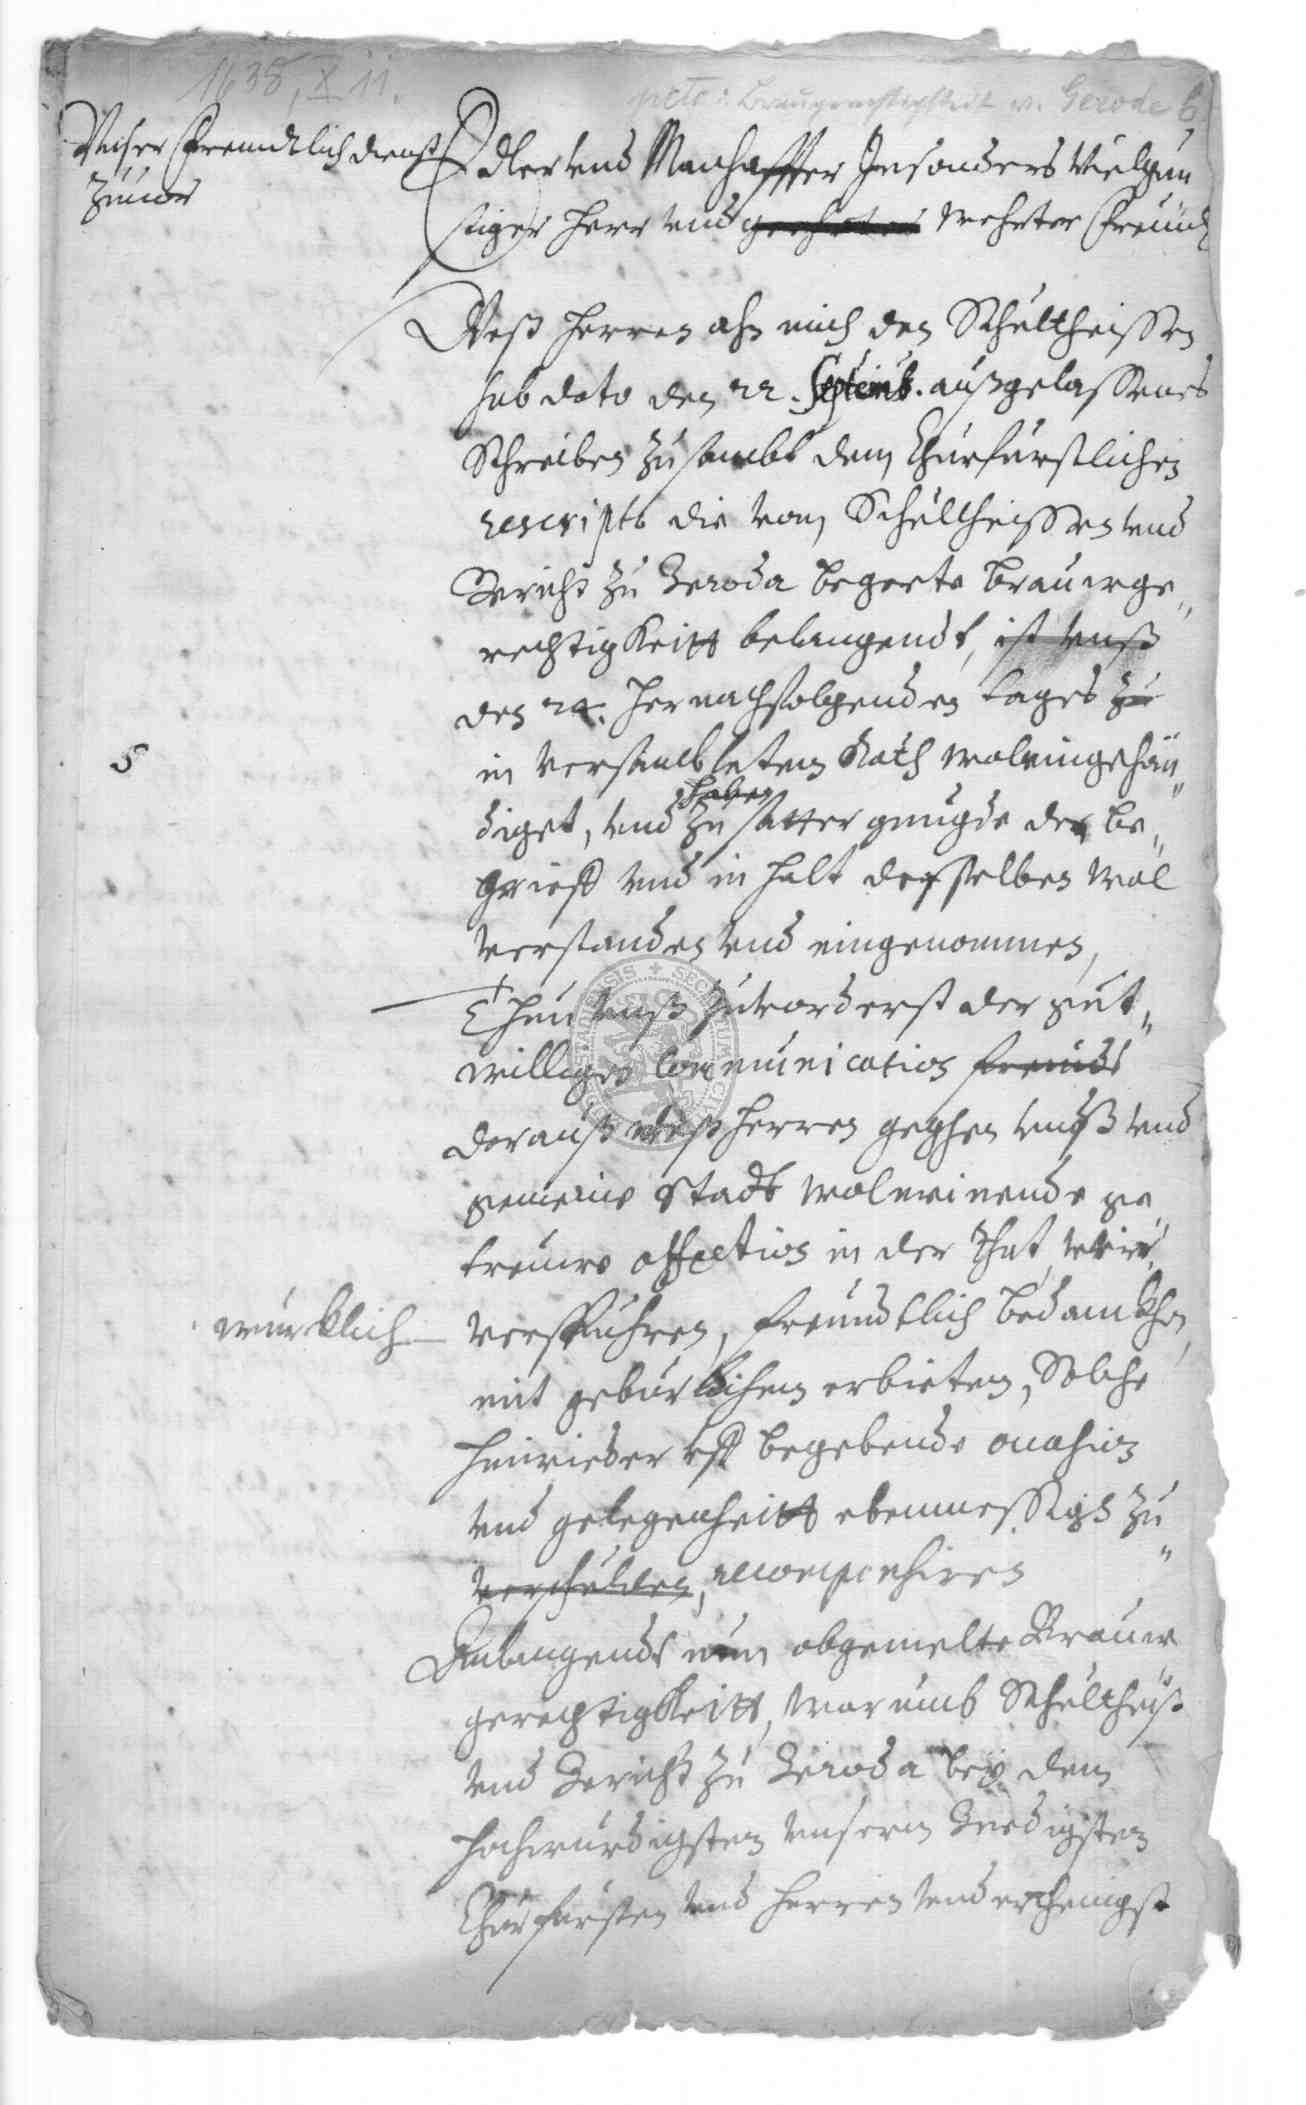 1635, X 11.
pcto: Braugerechtigkeit v. Gerode 6
Unser freundtlich dienst
zuuor
Edler vnd Manhaffter Insonders Vielgun
stiger Herr vnd geehrter wehrter Freund
Deß Herren ahn mich den Schultheissen
sub dato den 22. Septemb. außgelassenes
Schreiben zusambt dem Churfürstlichen
rescripto die vom Schultheissen vnd
Gericht zu Geroda begerte Brauwge„
rechtigkeitt belangendt, ist vnß
den 24. hernachfolgenden tages zu
in versambletem Rath woleingehän„
diget, vnd zu satter gnugde der be„
haben
grieff vnd inhalt desselben wol
verstanden vnd eingenommen,
Thun vnß zuvorderst der gut„
willigen Communication freundt
darauß wir deß Herren gegen vnß vnd
gemeine Stadt wolmeinende ge
treuwe affection in der That wir
würcklich
verspühren, freundtlich bedanckhen
mit gebürlichem erbieten, Solche
hinwieder vff begebende occasion
vnd gelegenheitt ebenmessigk zu
verschulden, recompensiren
Anlangendt nun obgemelte Brauw
gerechtigkeitt, warumb Schultheiß
vnd Gericht zu Geroda bey dem
Hochwürdigsten vnserm Gnedigsten
Churfürsten vnd Herren vnderthenigst
5